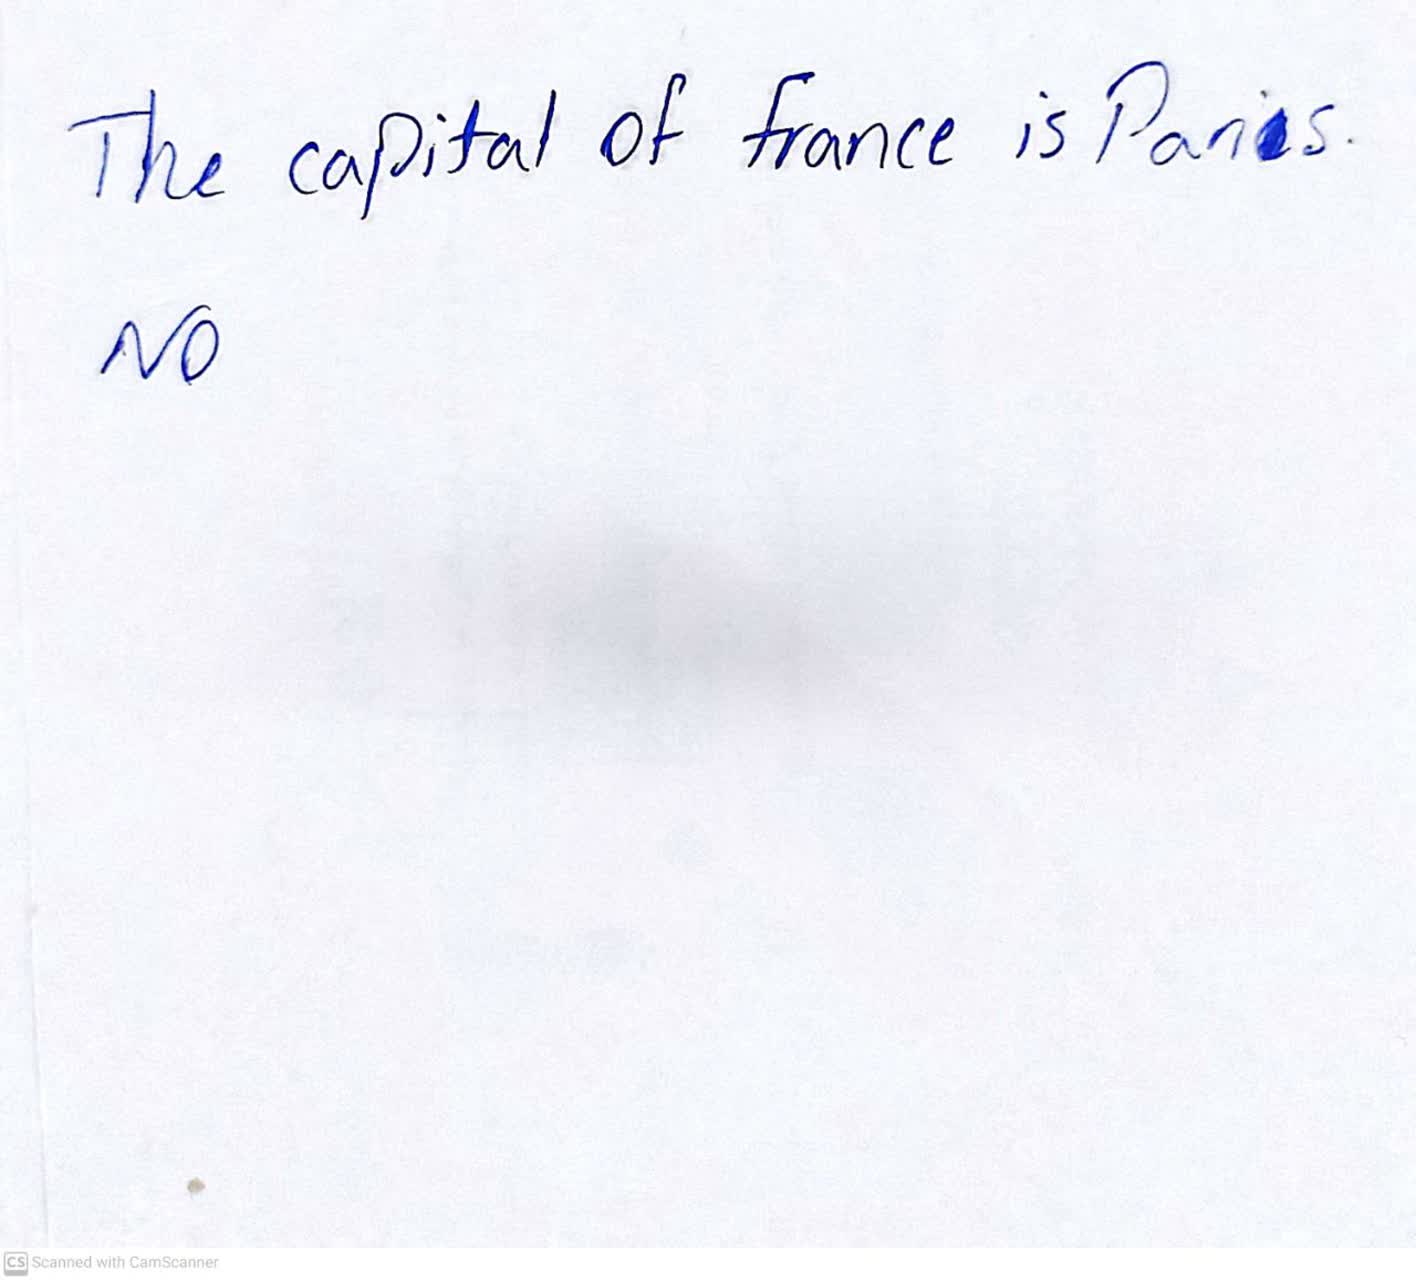 The capital of france is Paris.
NO
CS Scanned with CamScanner